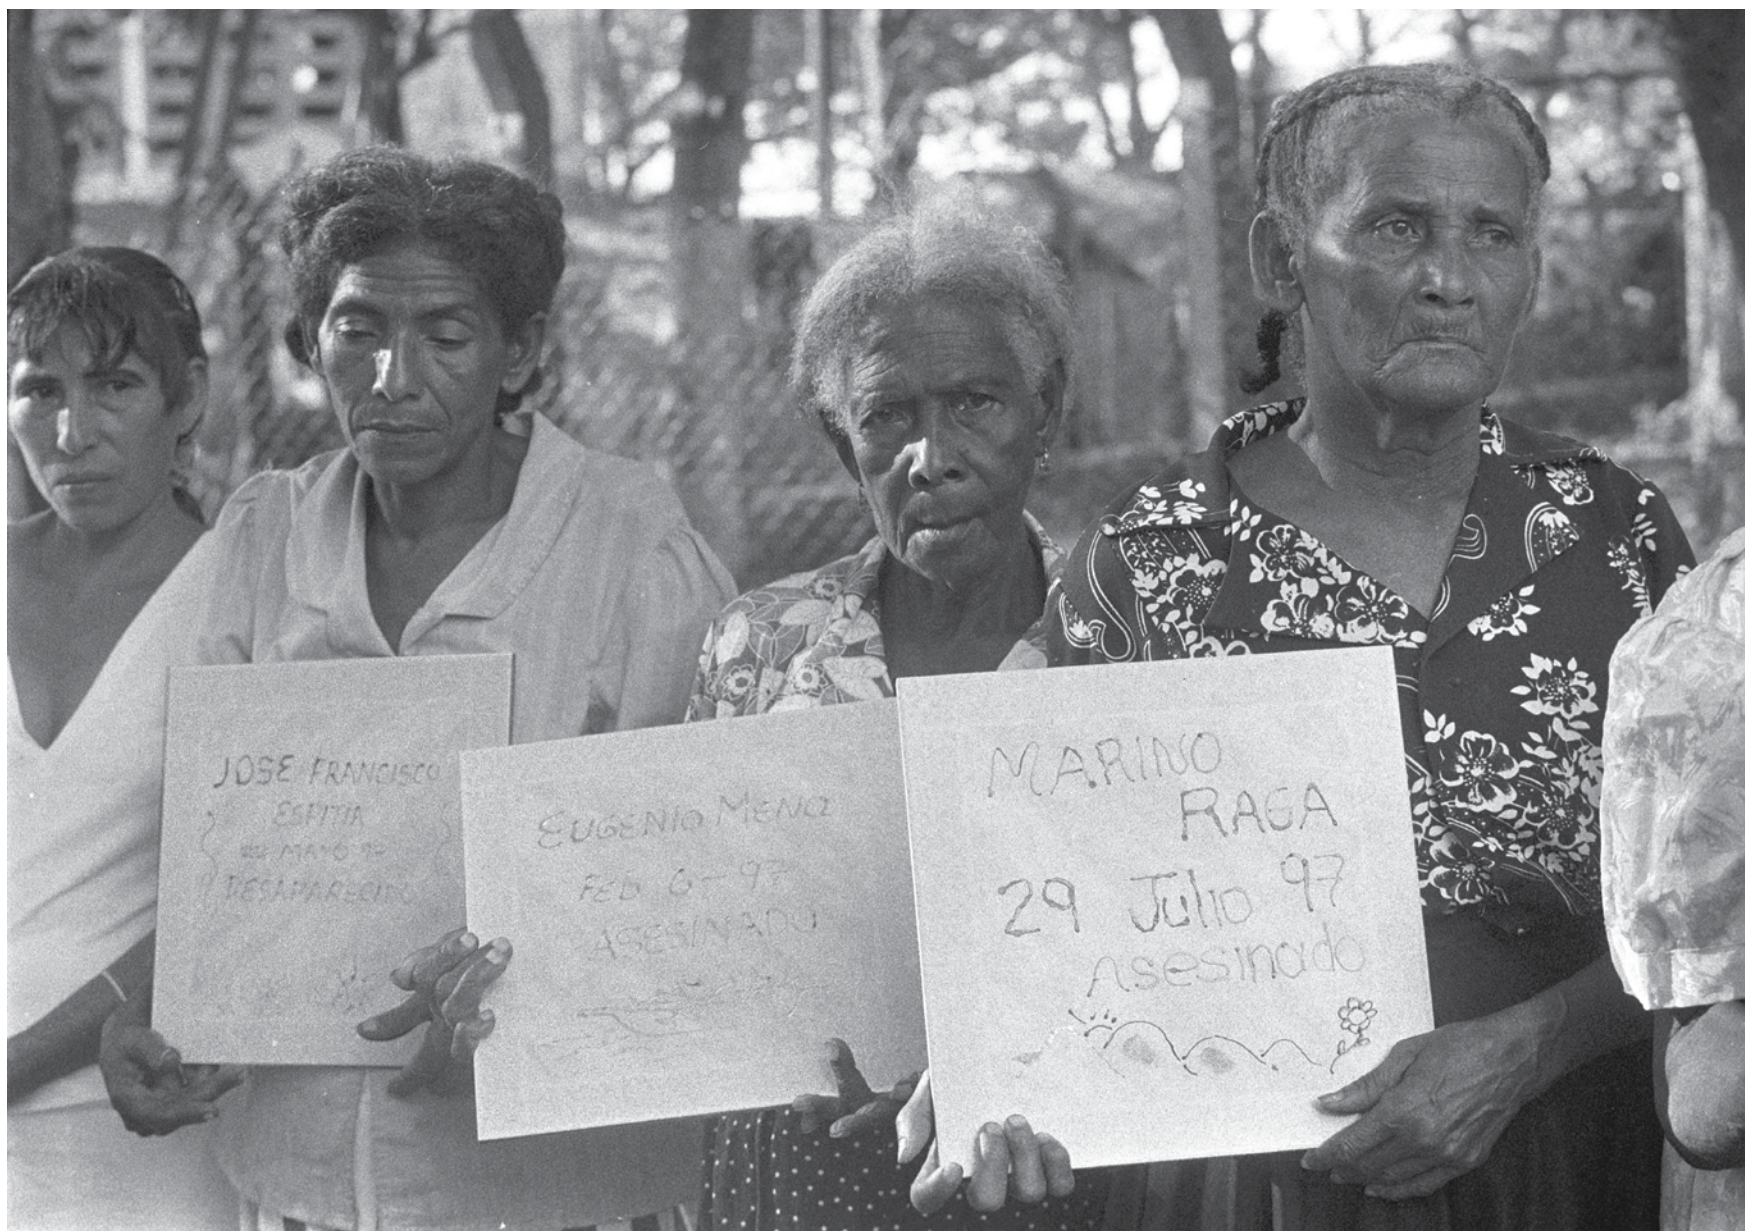 JOSE FRANCISCO
ESPITIA
MAYO
DESAPARECIDO
EUGENIO MENA
FEB 6-97
ASESINADO
MARINO
RAGA
29 Julio 97
Asesinado